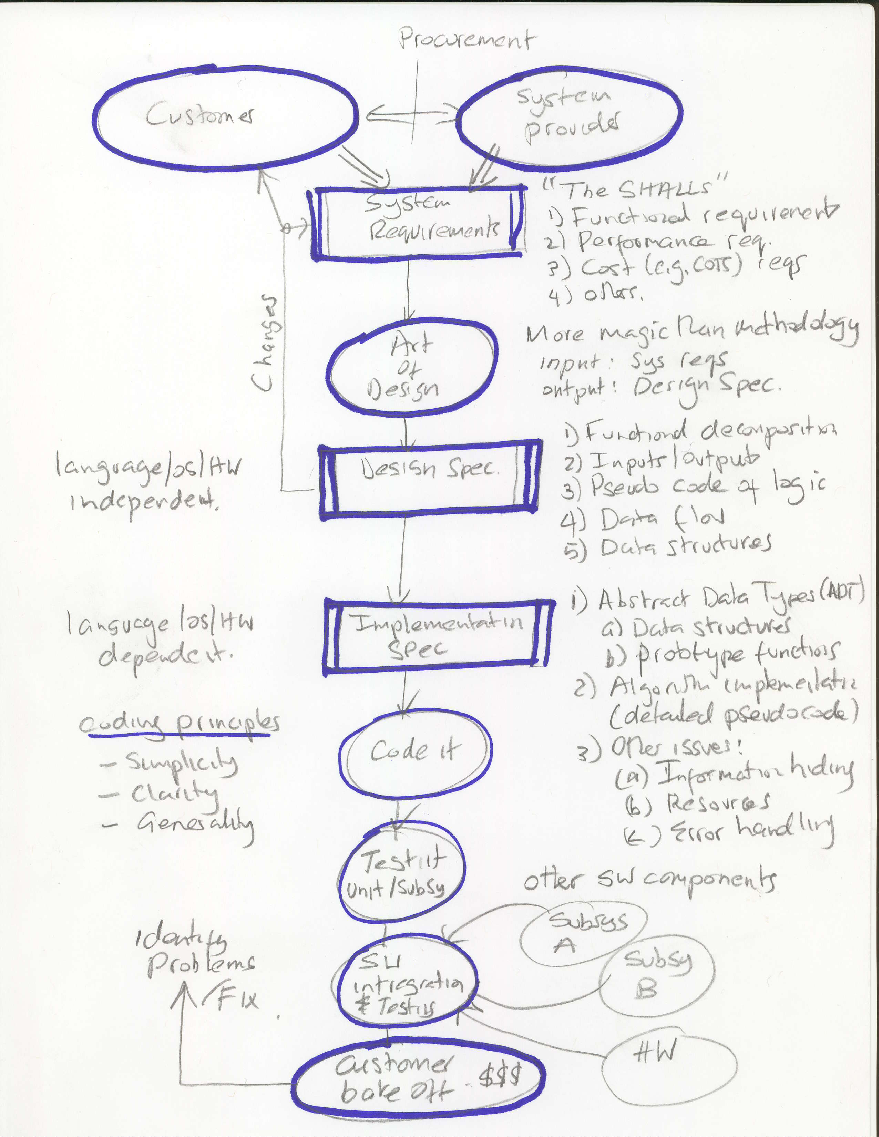 Procurement
Customer
System
provider
"The SHALLS"
System
Requirements
1) Functional requirement
2) Performance req.
3) Cost (e.g. COTS) reqs
4) others.
Changes
Art
of
Design
More magic than methodology
input: Sys reqs
output: Design Spec.
language/OS/HW
independent.
Design Spec.
1) Functional decomposition
2) Inputs/output
3) Pseudo code of logic
4) Data flow
5) Data structures
language/OS/HW
dependent.
Implementation
Spec
1) Abstract Data Types (ADT)
a) Data structures
b) prototype functions
2) Algorithm implementation
(detailed pseudocode)
3) Other issues:
(a) Information hiding
(b) Resources
(c) Error handling
coding principles
- Simplicity
- Clarity
- Generality
Code it
Test it
Unit/Subsy
other SW components
Subsys
A
Subsy
B
HW
SW
integration
& Testing
Identify
Problems
/Fix
Customer
bake off - $$$